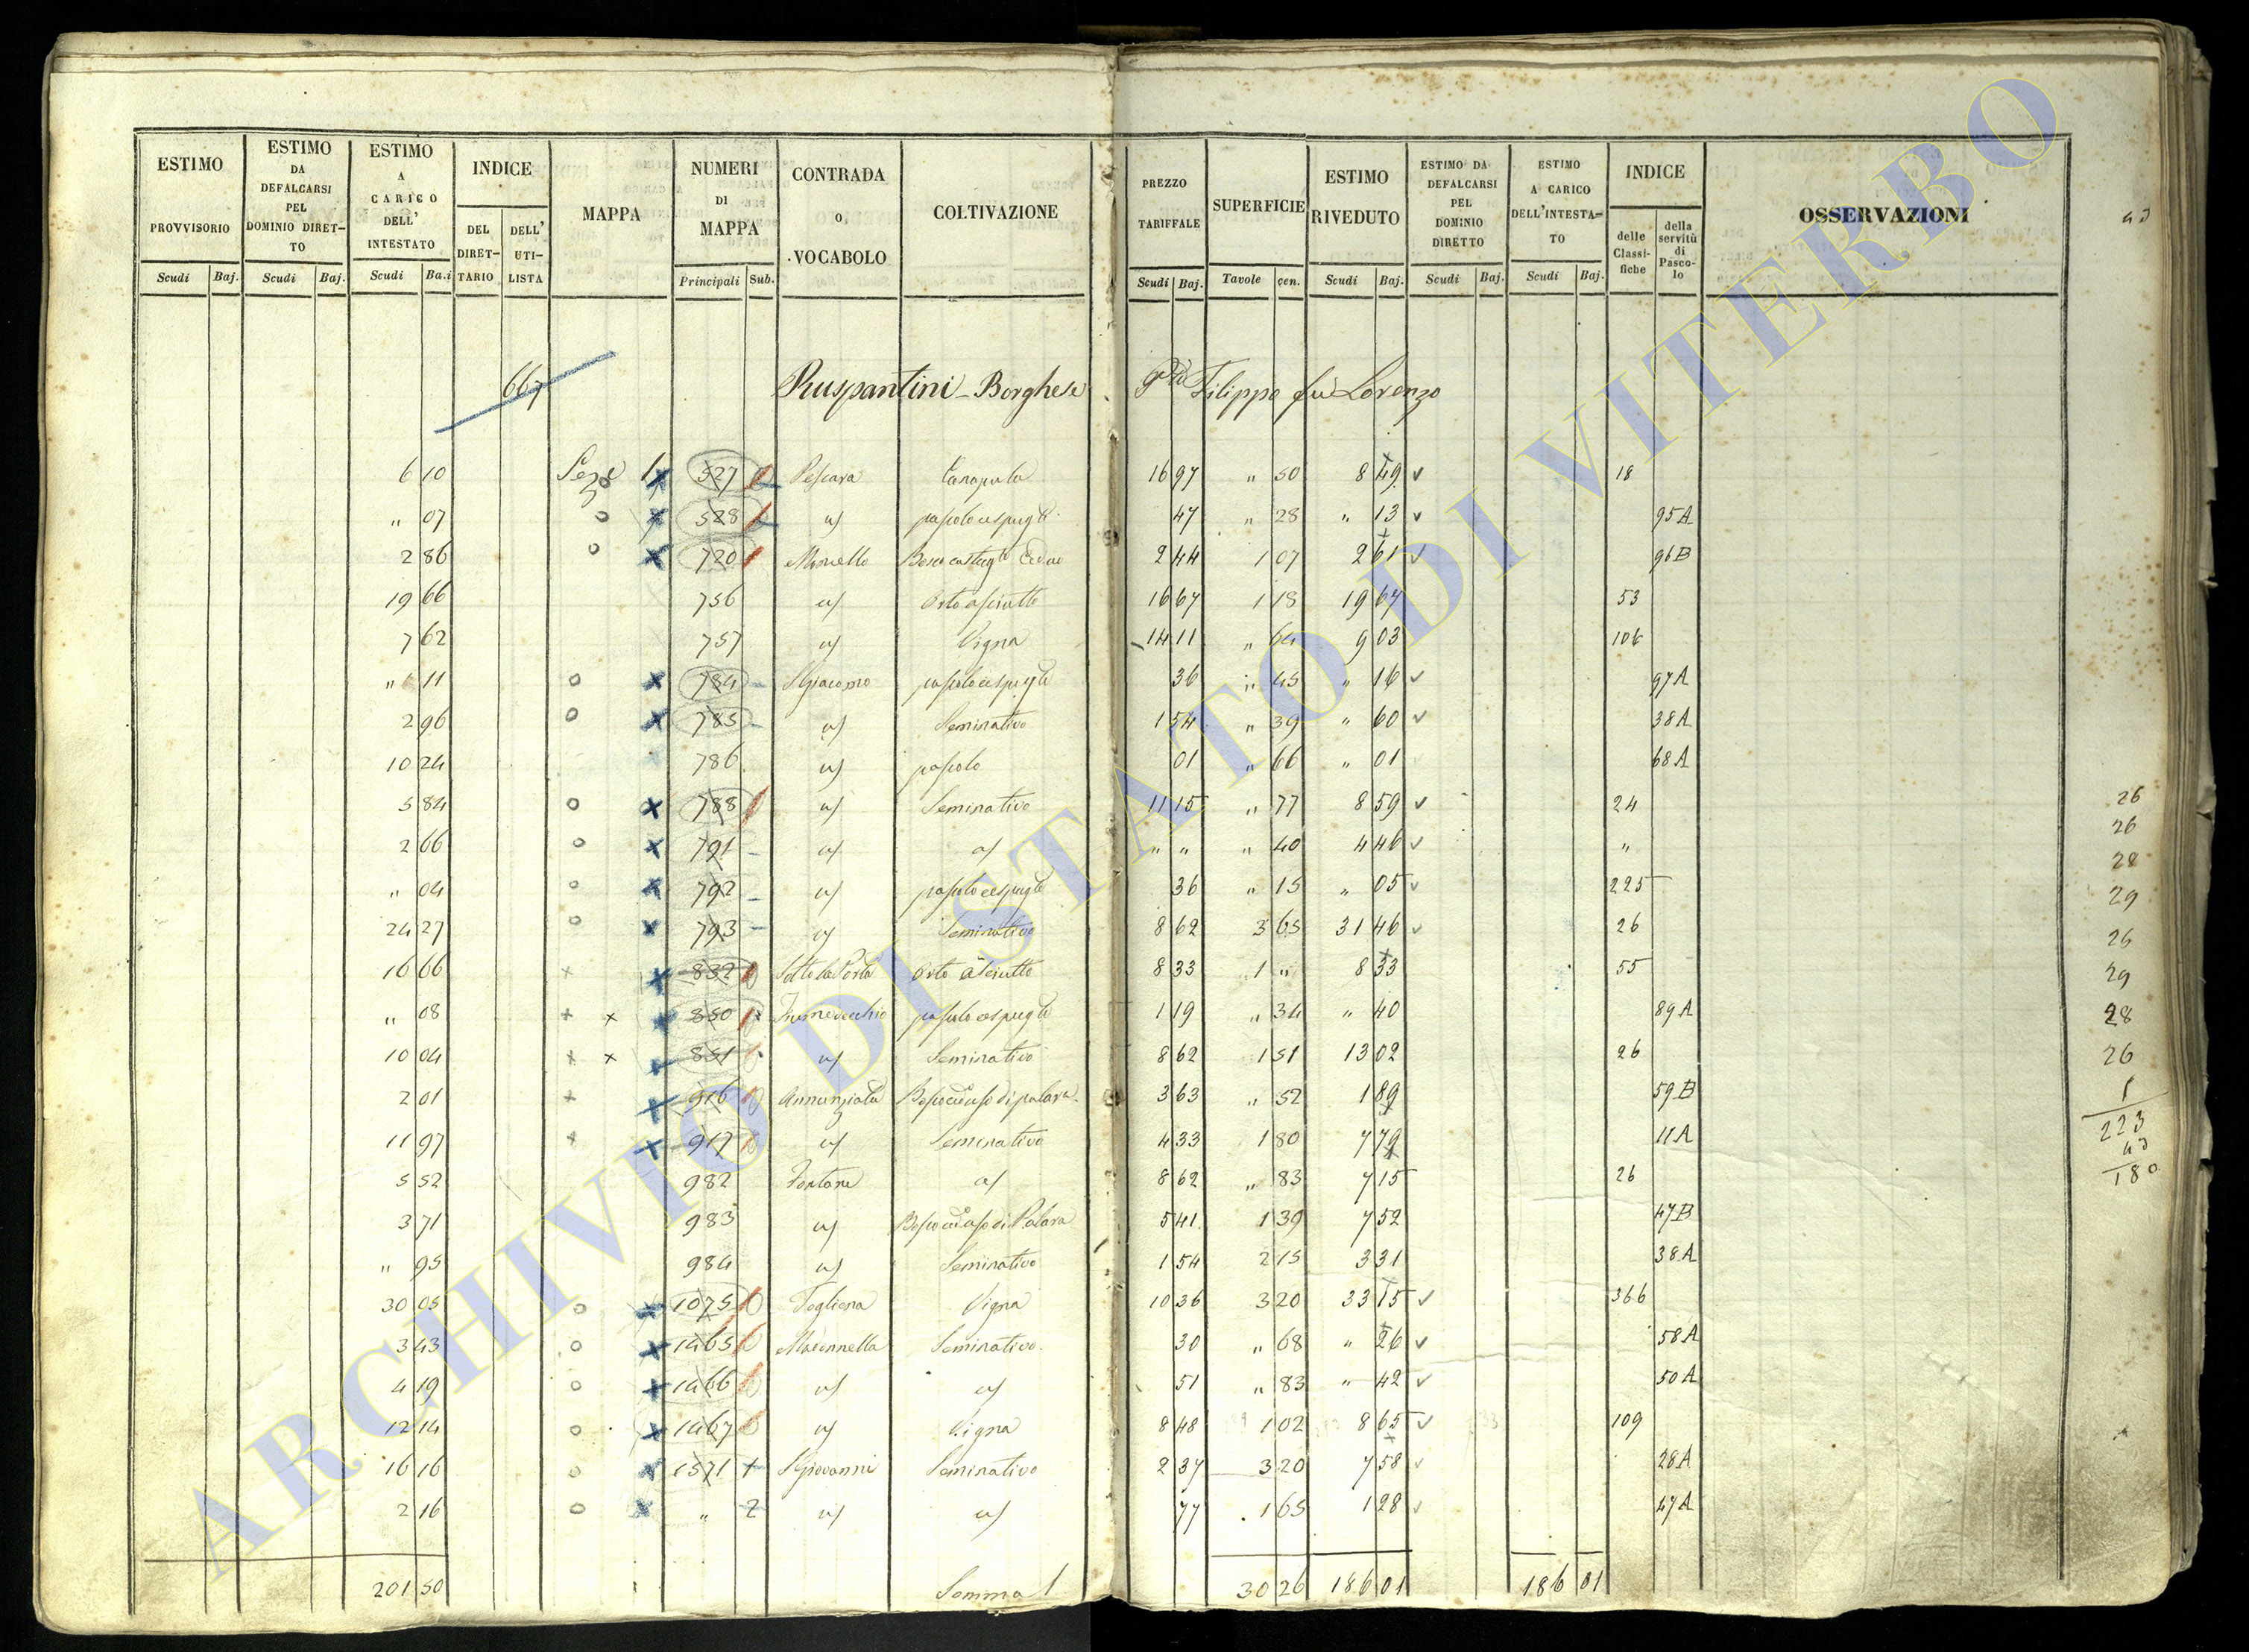 ESTIMO PROVVISORIO Scudi Baj.
ESTIMO DA DEFALCARSI PEL DOMINIO DIRETTO Scudi Baj.
ESTIMO A CARICO DELL' INTESTATO Scudi Ba.i
INDICE DEL DIRETTARIO DELL' UTILISTA
MAPPA
NUMERI DI MAPPA Principali Sub.
CONTRADA o VOCABOLO
COLTIVAZIONE
PREZZO TARIFFALE Scudi Baj.
SUPERFICIE Tavole cen.
ESTIMO RIVEDUTO Scudi Baj.
ESTIMO DA DEFALCARSI PEL DOMINIO DIRETTO Scudi Baj.
ESTIMO A CARICO DELL'INTESTATO Scudi Baj.
INDICE delle Classifiche della servitù di Pascolo
OSSERVAZIONI
667 Ruspantini-Borghese Filippo fu Lorenzo
6 10 527 Pescara 16 97 " 50 8 49 18
" 07 528 47 " 28 " 13 95A
2 86 720 2 44 1 07 2 61 96B
19 66 756 Orto asciutto 16 67 1 18 19 67 53
7 62 757 Vigna 14 11 " 64 9 03 106
" 11 784 S Giacomo 36 " 45 " 16 97A
2 96 785 Seminativo 1 54 " 39 " 60 38A
10 24 786 pascolo 01 " 66 " 01 68A
5 84 788 Seminativo 11 15 " 77 8 59 24
2 66 791 " " " 40 4 46 "
" 04 792 36 " 15 " 05 225
24 27 793 Seminativo 8 62 3 65 31 46 26
16 66 832 Sotto la Porta Orto asciutto 8 33 1 " 8 33 55
" 08 850 Fiumevecchio 1 19 " 34 " 40 89A
10 04 851 Seminativo 8 62 1 51 13 02 26
2 01 916 Annunziata 3 63 " 52 1 89 59B
11 97 917 Seminativo 4 33 1 80 7 79 11A
5 52 982 Fontane 8 62 " 83 7 15 26
3 71 983 5 41 1 39 7 52 47B
" 95 984 Seminativo 1 54 2 15 3 31 38A
30 05 1075 Vigna 10 36 3 20 33 15 366
3 43 1465 Madonnella Seminativo 30 " 68 " 26 58A
4 19 1466 51 " 83 " 42 50A
12 14 1467 Vigna 8 48 1 02 8 65 109
16 16 1571 1 S Giovanni Seminativo 2 37 3 20 7 58 28A
2 16 " 2 77 1 65 1 28 47A
201 50 Somma 30 26 186 01 186 01
43
26
26
28
29
26
29
28
26
1
223
43
180
ARCHIVIO DI STATO DI VITERBO